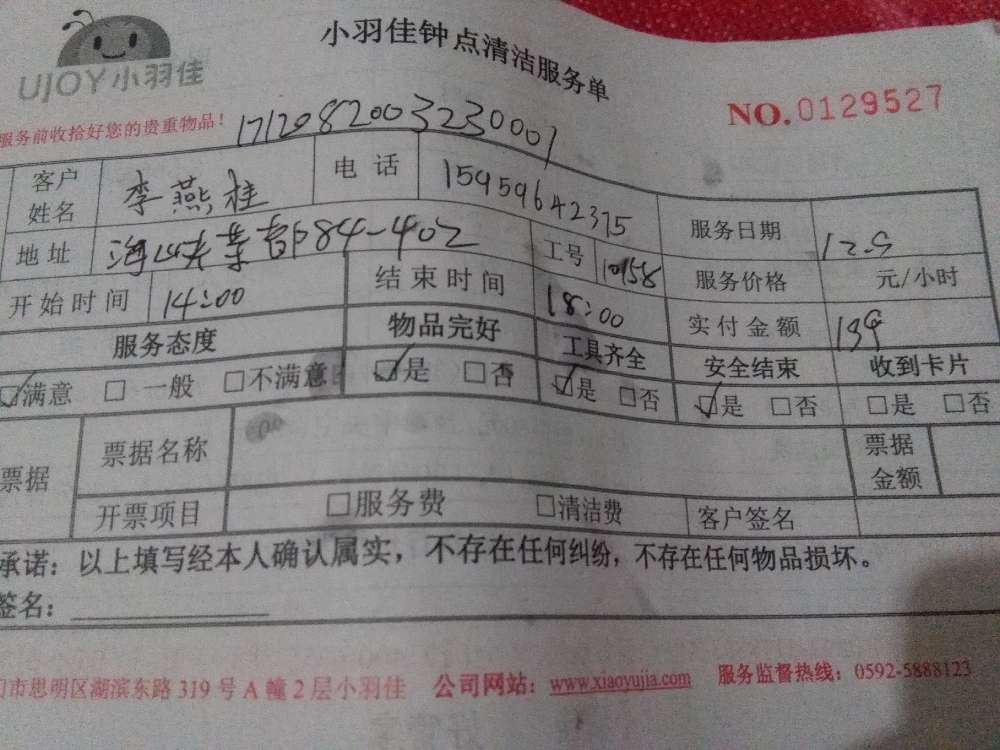 UJOY小羽佳
小羽佳钟点清洁服务单
NO.0129527
服务前收拾好您的贵重物品!
1712082003230001
客户姓名 李燕桂 电话 15959642375 服务日期 12.9
地址 84-402 工号 10158 服务价格 元/小时
开始时间 14:00 结束时间 18:00 实付金额 199
服务态度 物品完好 工具齐全 安全结束 收到卡片
☑满意 □一般 □不满意 ☑是 □否 ☑是 □否 ☑是 □否 □是 □否
票据 票据名称 票据金额
开票项目 □服务费 □清洁费 客户签名
承诺：以上填写经本人确认属实，不存在任何纠纷，不存在任何物品损坏。
签名：
门市思明区湖滨东路319号A幢2层小羽佳 公司网站：www.xiaoyujia.com 服务监督热线：0592-5888123